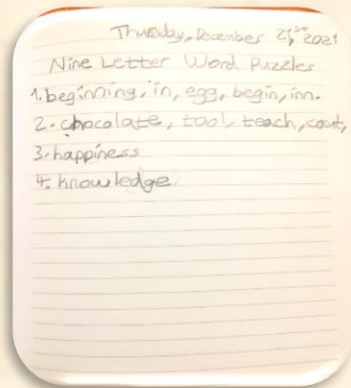 Thursday, December 21st 2021
Nine Letter Word Puzzles
1. beginning, in, egg, begin, inn.
2. chocolate, tool, teach, coat,
3. happiness
4. knowledge.